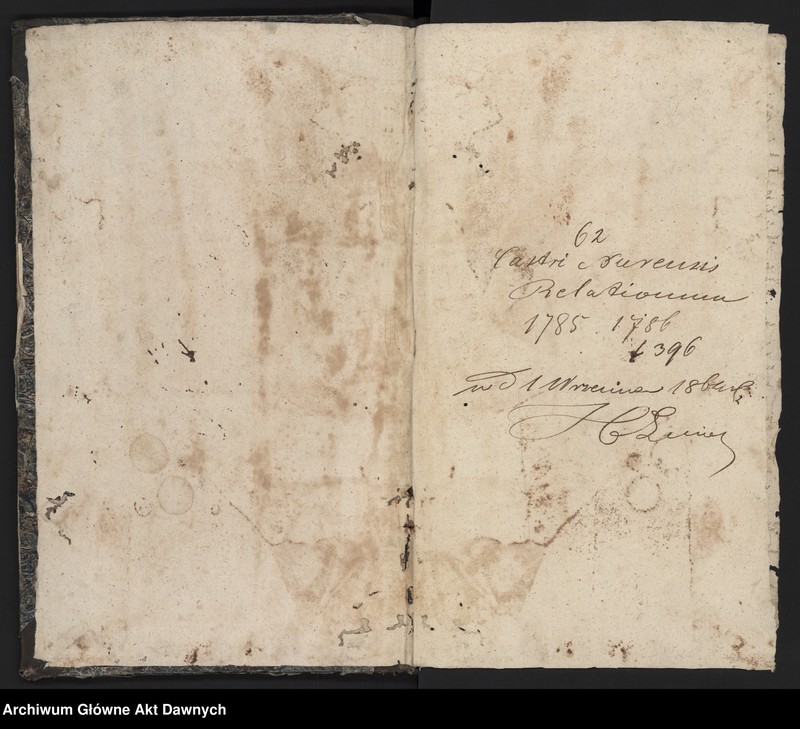 62
Castri Nurensis
Relationum
1785. 1786
396
d 1 Września
Archiwum Główne Akt Dawnych